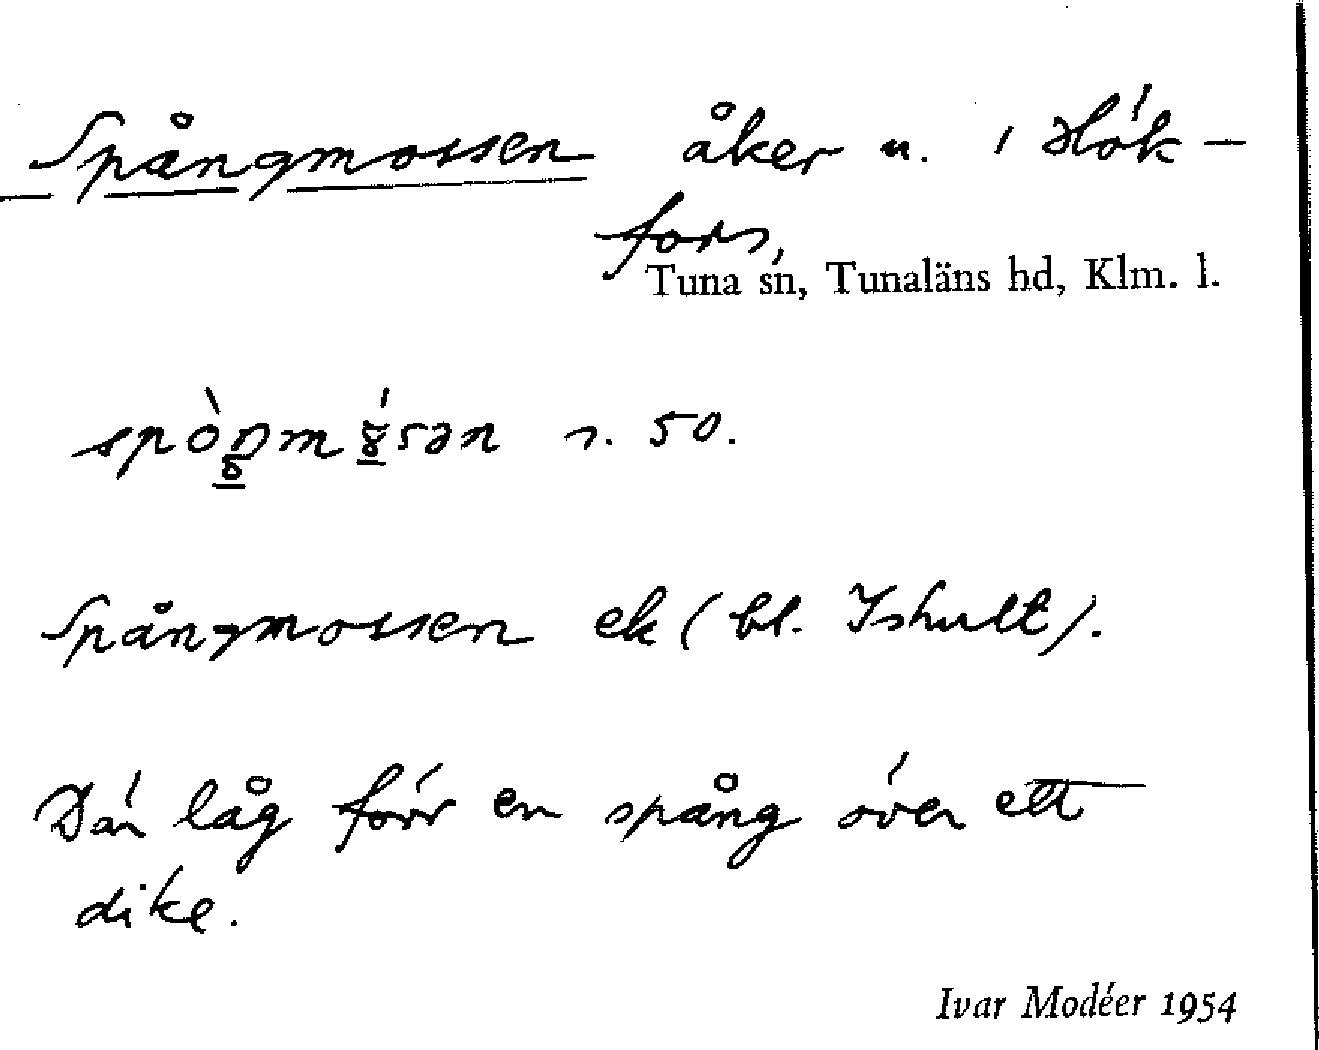 Spångmossen åker n. i Hök-
fors,
Tuna sn, Tunaläns hd, Klm. l.
s. 50.
Spångmossen ek (bl. Ishult).
Där låg förr en spång över ett
dike.
Ivar Modéer 1954